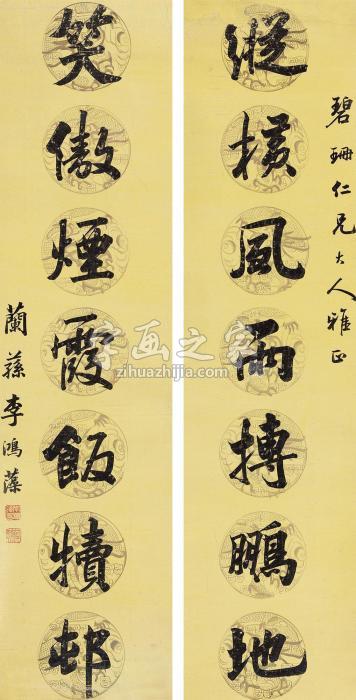 碧珊仁兄大人雅正
縱橫風雨搏鵬地
笑傲煙霞飯犢邨
蘭蓀李鴻藻
字画之家
zihuazhijia.com